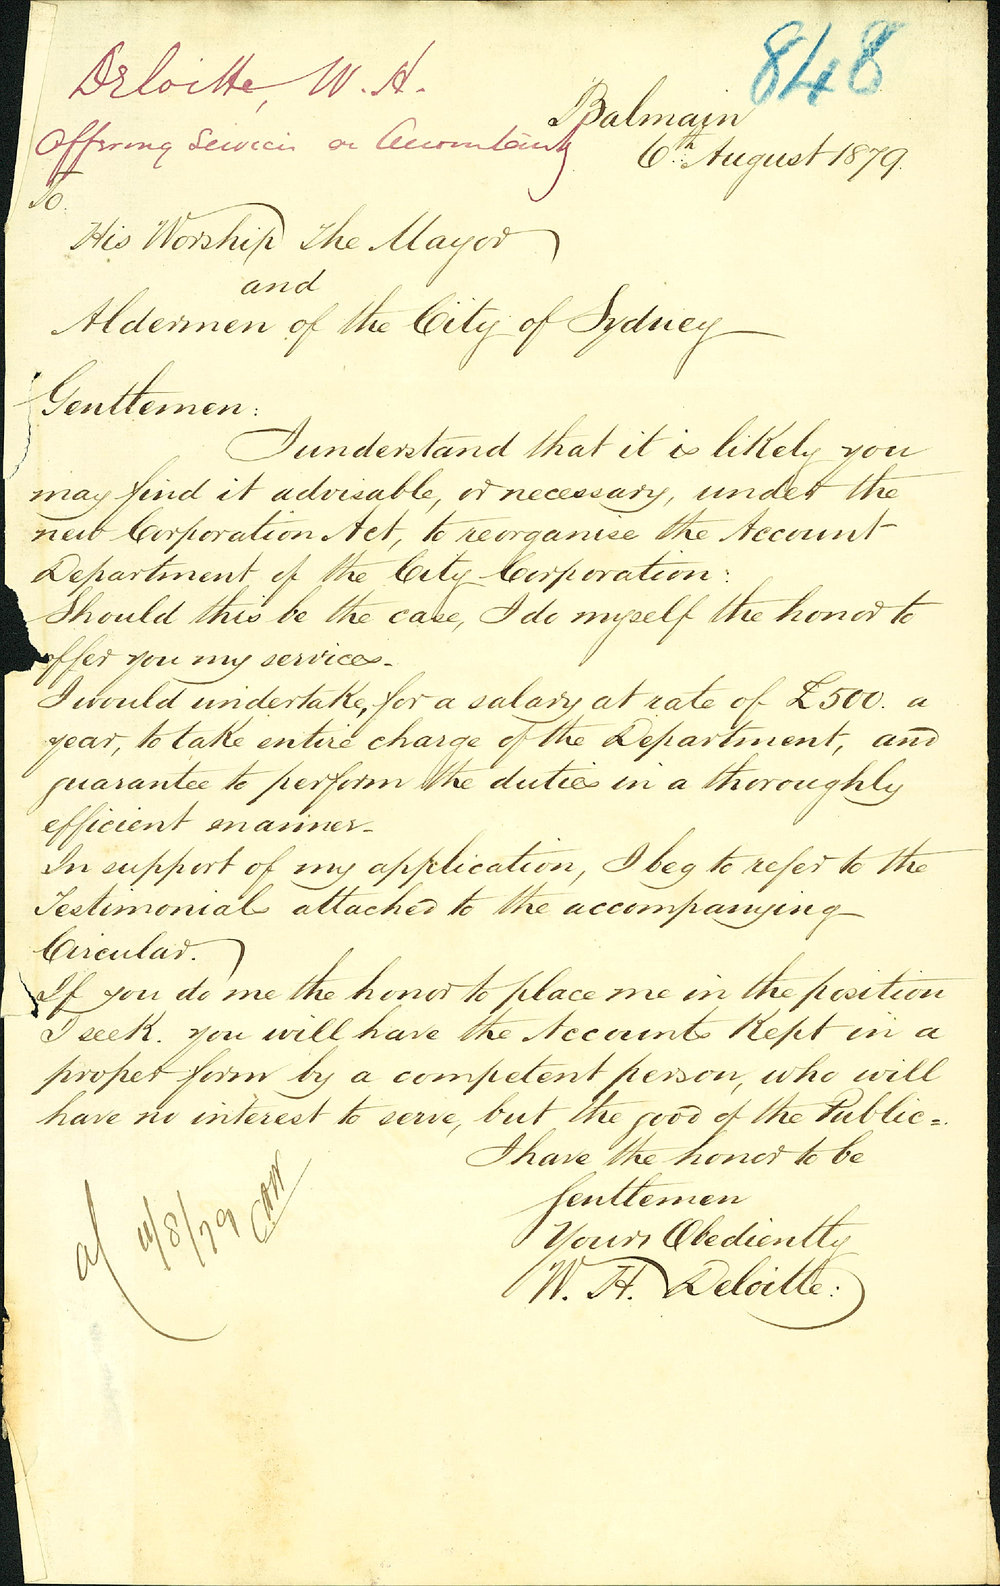 848
Deloitte, W. H.
Offering Services as Accountant
Balmain
6th August 1879.
To.
His Worship The Mayor
and
Aldermen of the City of Sydney
Gentlemen:
I understand that it is likely you
may find it advisable, or necessary, under the
new Corporation Act, to reorganise the Account
Department of the City Corporation:
Should this be the case, I do myself the honor to
offer you my services-
I would undertake, for a salary at rate of £500. a
year, to take entire charge of the Department, and
guarantee to perform the duties in a thoroughly
efficient manner-
In support of my application, I beg to refer to the
Testimonials attached to the accompanying
Circular.
If you do me the honor to place me in the position
I seek. you will have the Accounts Kept in a
proper form by a competent person, who will
have no interest to serve, but the good of the Public=.
I have the honor to be
Gentlemen
Yours Obediently
W. H. Deloitte:
/8/79